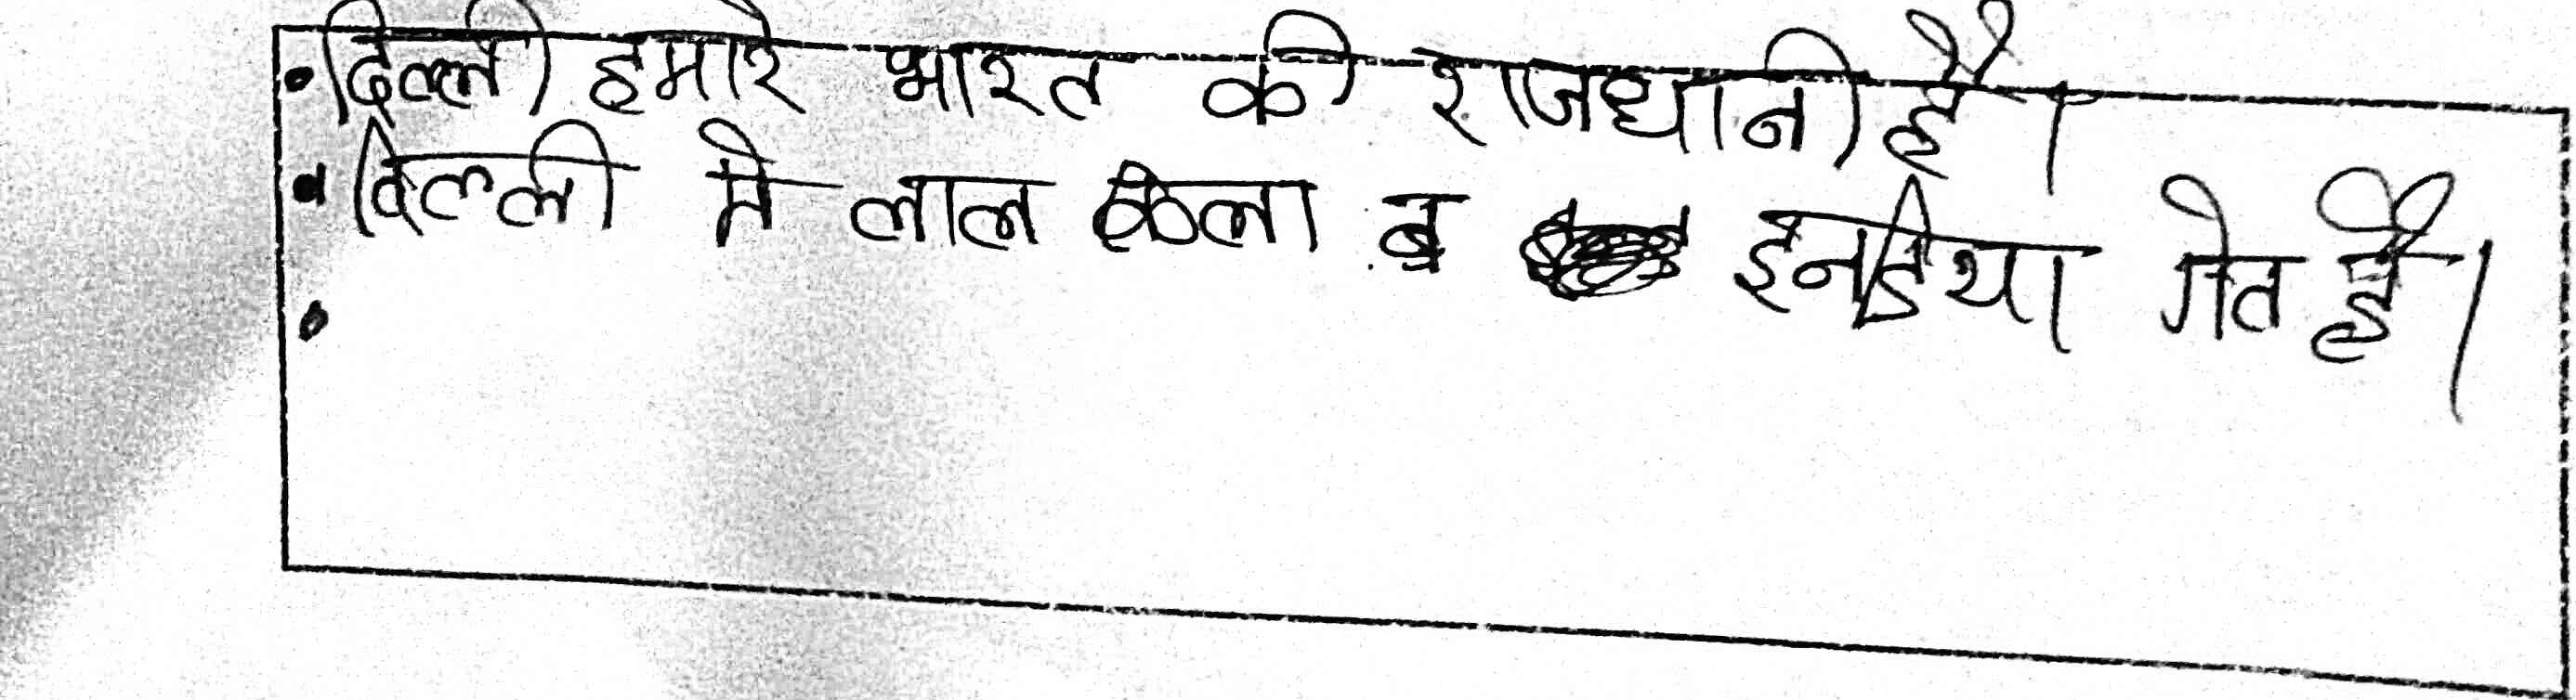 • दिल्ली हमारे भारत की राजधानी है।
• दिल्ली मे लाल किला व इनडिया गेत है।
•